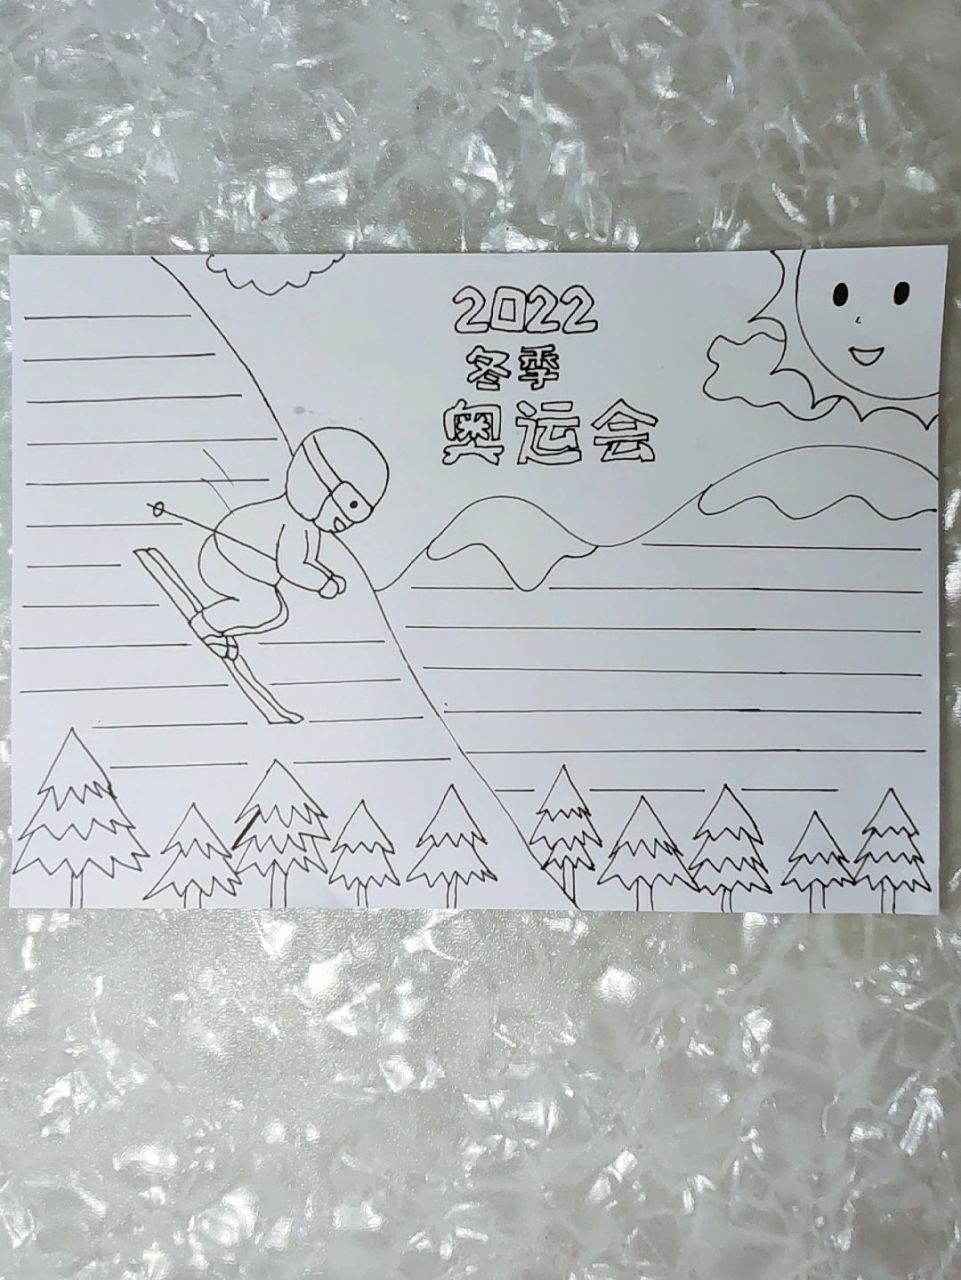 2022
冬季
奥运会